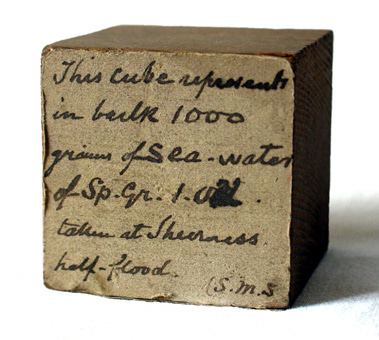 This cube represents
in bulk 1000
grains of Sea-water
of Sp. Gr. 1.0
taken at Sheerness.
half-flood.
(S.M.S